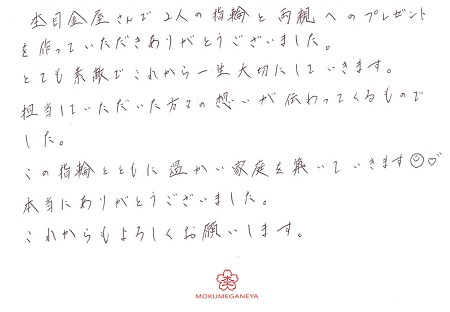 杢目金屋さんで2人の指輪と両親へのプレゼント
を作っていただきありがとうございました。
とても素敵でこれから一生大切にしていきます。
担当していただいた方々の想いが伝わってくるもので
した。
この指輪とともに温かい家庭を築いていきます☺♡
本当にありがとうございました。
これからもよろしくお願いします。
MOKUMEGANEYA